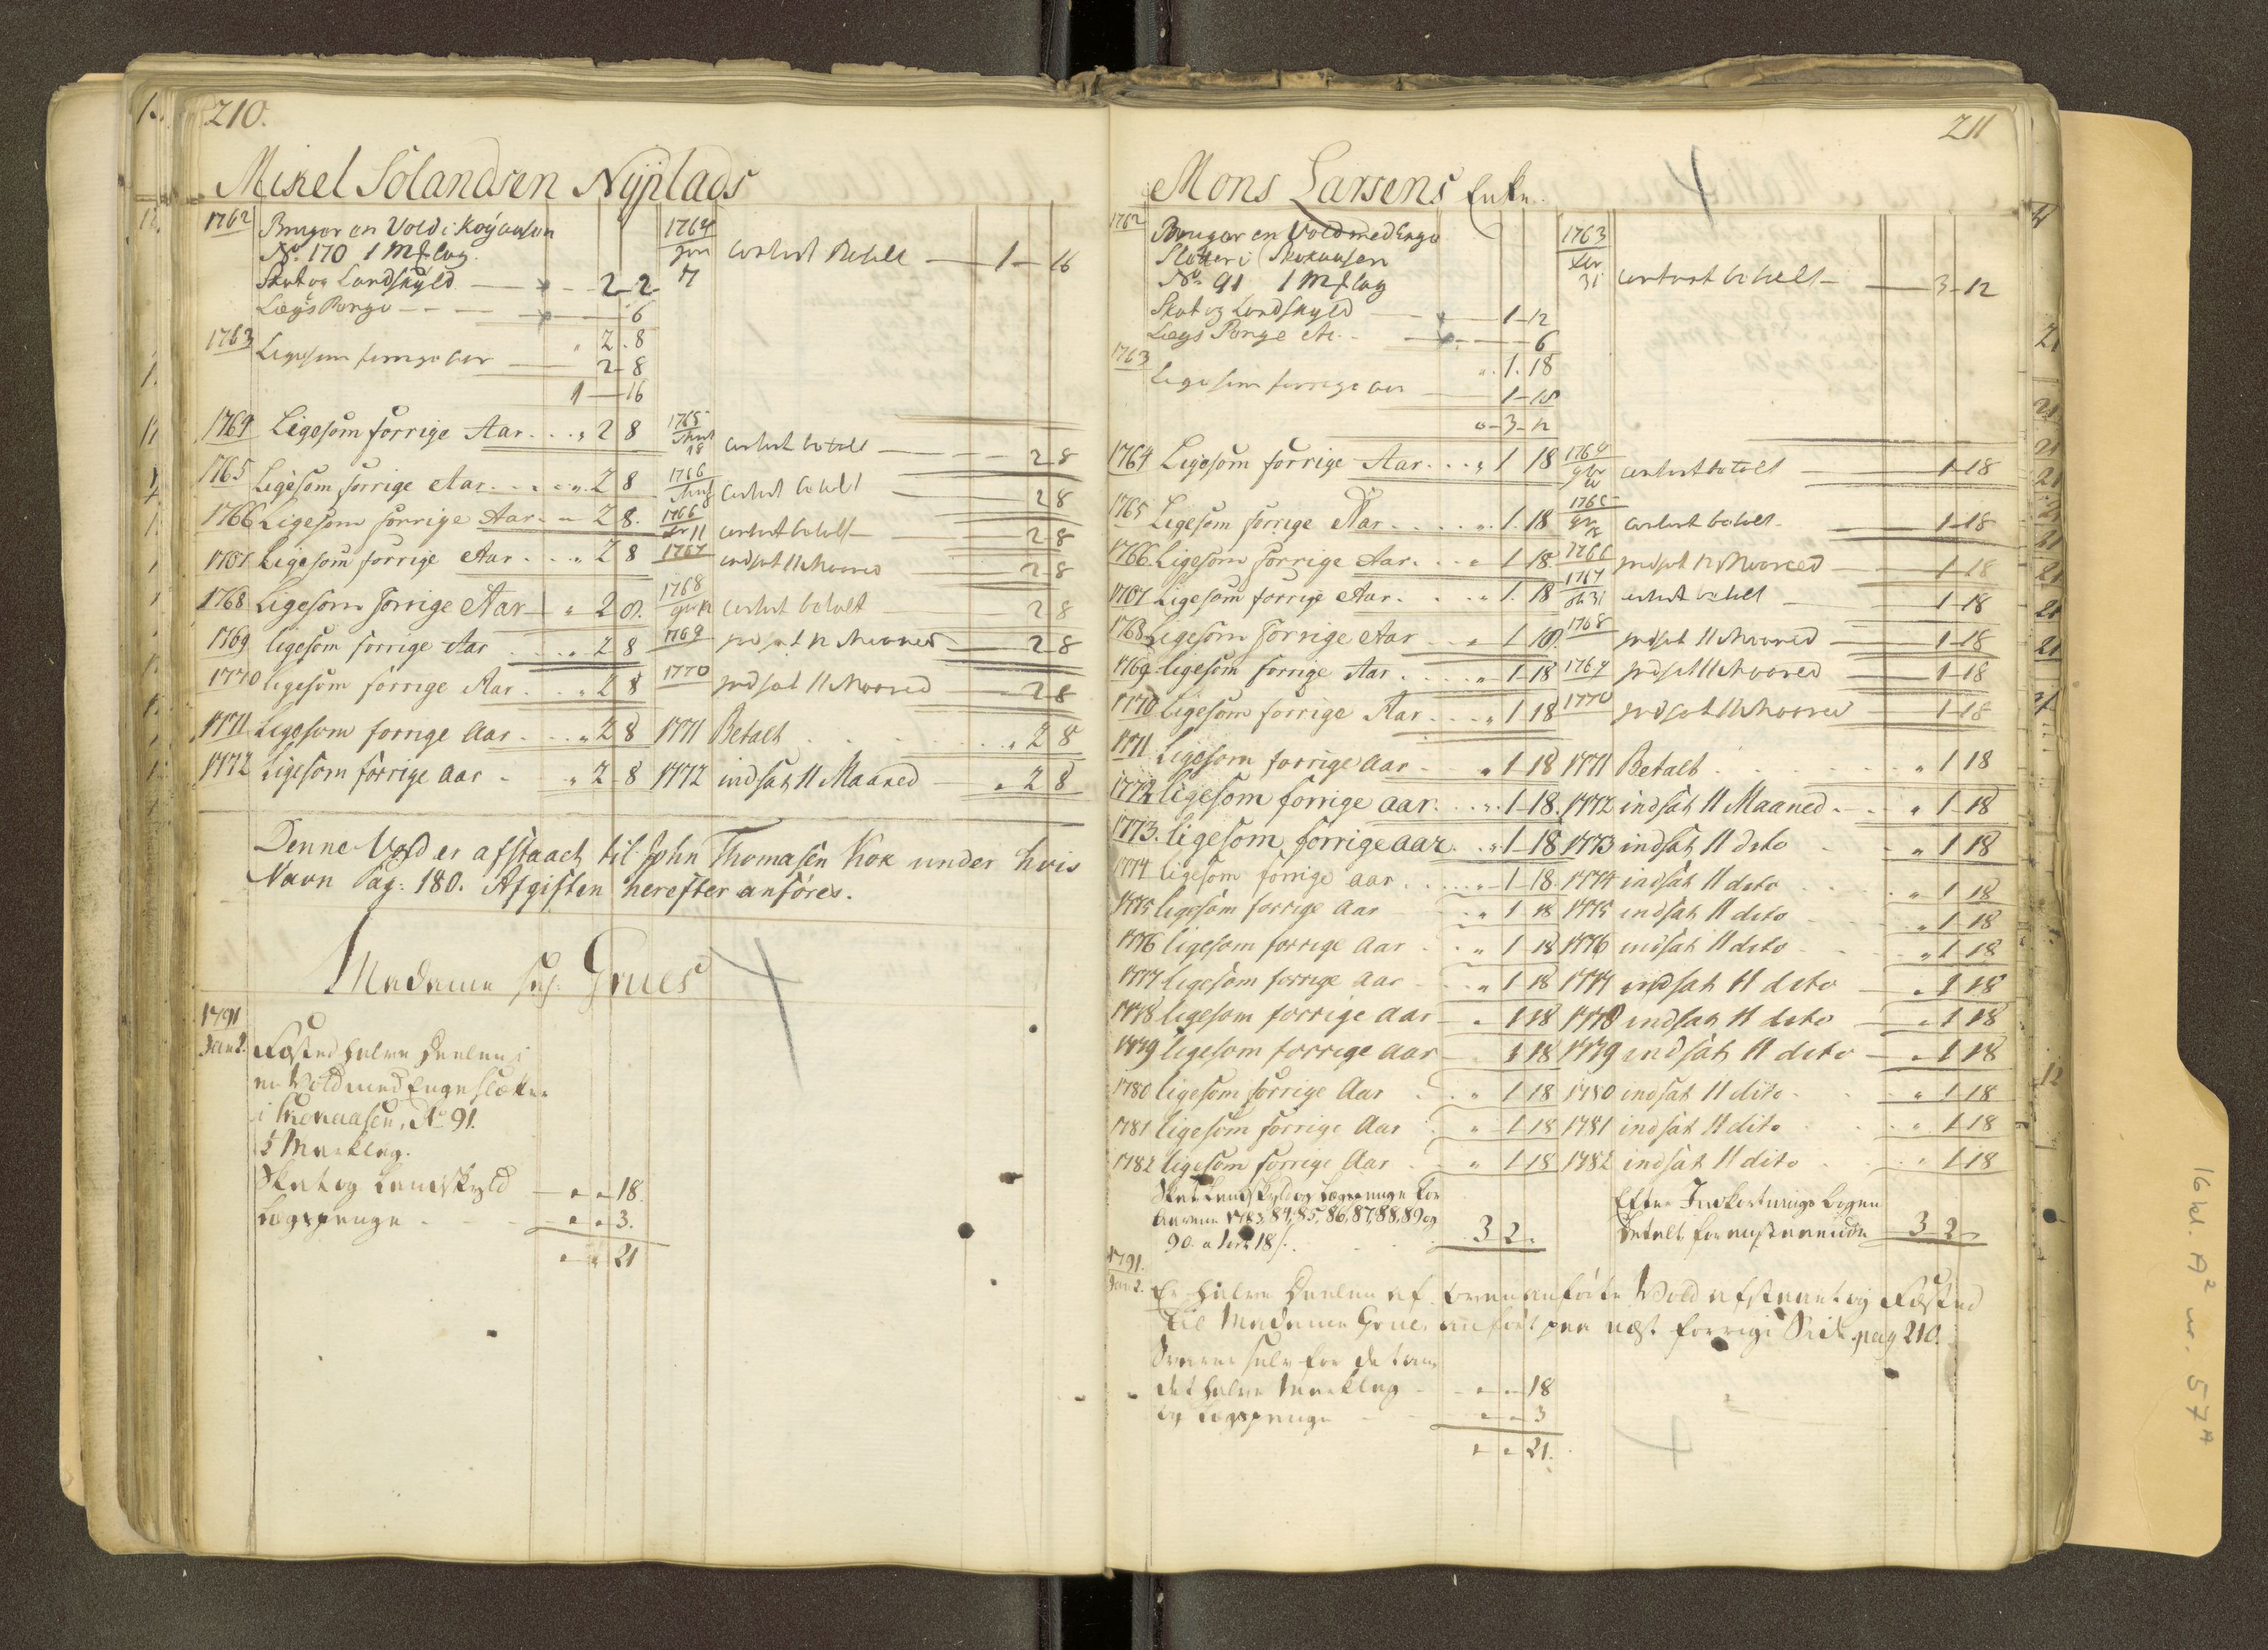 210.
Mikel Solandsen Nÿplads
1762 Bruger en Vold i Koÿaasen
No. 170 1 Mklag.
Skat og Landskyld — 2 2
Lægs Penge — 6
" 2. 8
1763 Ligesom forrige aar — 2 8
1 — 16
1764 Ligesom forrige Aar . . . " 2 8
1765 Ligesom forrige Aar . . . " 2 8
1766 Ligesom forrige Aar - - 2 8.
1767 Ligesom forrige Aar . . . " 2 8
1768 Ligesom forrige Aar " 2 8.
1769 ligesom forrige Aar . . . " 2 8
1770 ligesom forrige Aar . . . " 2 8
1771 Ligesom forrige Aar . . . " 2 8
1772 Ligesom forrige Aar - " 2 8
1764 7 contant Betalt — 1 — 16
1765 18 contant betalt — 2 8
1766 contant betalt — 2 8
1766 11 contant betalt — 2 8
1767 indsat 11 Maaned 2 8
1768 contant betalt — 2 8
1769 indsat 11 Maaned — 2 8
1770 indsat 11 Maaned — 2 8
1771 Betalt . . . " 2 8
1772 indsat 11 Maaned — " 2 8
Denne Vold er afstaaet til John Thomasen Kok under hvis
Navn Pag: 180. Afgiften herefter anföres.
Madame Grues
1791
Jan 2. Fæsted halve Deelen i
en Vold med Enge slætter
i Skrenaasen, No 91.
½ Marklag.
Skat og Landskyld — " " 18.
Lægspenge - - - " " 3.
" " 21
211
Mons Larsens Enke.
1762 Bruger en Vold med Enge
Slætter i
No. 91 1 Mklag
Skat og Landskyld — 1 - 12
Lægs Penge etc. — 6
" 1. 18
1763 Ligesom forrige aar — 1 - 18
" 3 - 12
1764 Ligesom forrige Aar . . . " 1 18
1765 Ligesom forrige Aar . . . " 1. 18
1766 Ligesom forrige Aar . . " 1 18.
1767 Ligesom forrige Aar . . " 1. 18
1768 Ligesom forrige Aar . . " 1 18.
1769 ligesom forrige Aar . . . " 1 - 18
1770 Ligesom forrige Aar . . . " 1 18
1771 Ligesom forrige Aar - " 1 - 18
1772 ligesom forrige aar . . . " 1 - 18.
1773. ligesom forrige aar . . " 1 - 18
1774 ligesom forrige aar . . . " 1 - 18.
1775 ligesom forrige Aar . " 1 18
1776 ligesom forrige Aar . " 1 18
1777 ligesom forrige Aar . " 1 18
1778 ligesom forrige Aar - " 1 18
1779 ligesom forrige Aar - 1 18
1780 ligesom forrige Aar . " 1 18
1781 ligesom forrige Aar " 1 - 18
1782 ligesom forrige Aar . " 1 18
Skat Landskyld og Lægspenge for
Aarene 1783, 84, 85, 86, 87, 88, 89 og
90. a 1 ort 18 s. . . . 3 2 "
1763 31 contant betalt — 3 - 12
1764 contant betalt — 1 - 18
1765 contant betalt — 1 - 18
1766 indsat 11 Maaned — 1 - 18
1767 31 contant betalt — 1 - 18
1768 indsat 11 Maaned — 1 - 18
1769 indsat 11 Maaned — 1 - 18
1770 indsat 11 Maaned — 1 - 18
1771 Betalt . . . " 1 18
1772 indsat 11 Maaned - - " 1 - 18
1773 indsat 11 dito - " 1 18
1774 indsat 11 dito . . . " 1 18
1775 indsat 11 dito . . " 1 - 18
1776 indsat 11 dito - " 1 18
1777 indsat 11 dito — " 1 18
1778 indsat 11 dito — " 1 18
1779 indsat 11 dito — " 1 18
1780 indsat 11 dito . " 1 18
1781 indsat 11 dito . " 1 18
1782 indsat 11 dito . " 1 18
Efter Indkortnings bogen
betalt foranstaaende 3 2 "
1791.
Jan 2. Er halve Deelen af forananförte Vold afstaaet og Fæsted
til Madame Grues anfört paa næst forrige Side pag 210.
Svarer selv for
det halve Marklag — " " 18
og Lægspenge - - " " 3
" " 21.
16 kl. A² nr. 57ᴬ